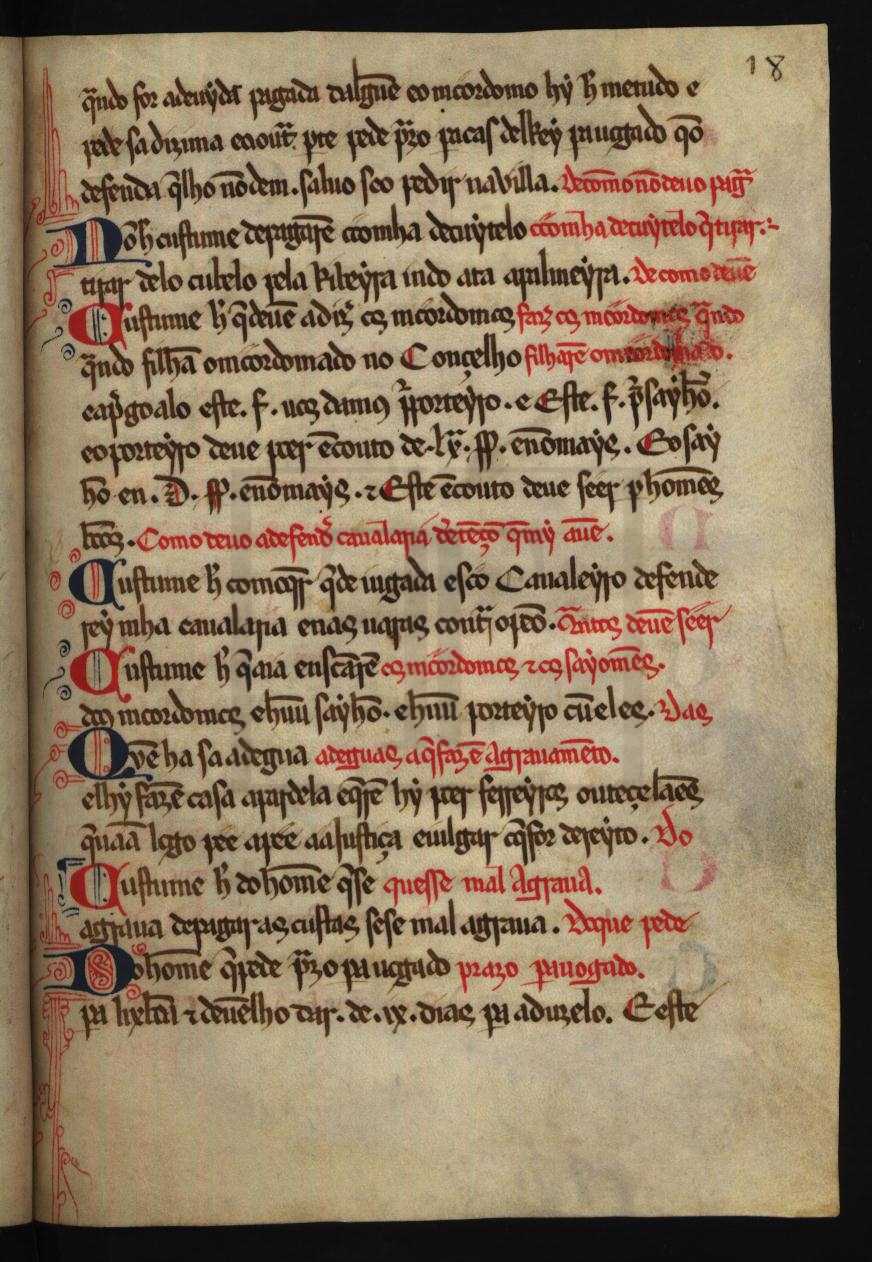 18
q̄ndo for a deuyda pagada dalguē e o moordomo hy h̄ metudo e
pede sa dizima e a out̄ pte pede p̄zo pa cas delRey pa uogado qō
defenda q̄lho nō dem. saluo seo pedir na villa. De como nō deuo pag̃
Nō h̄ custume de pagarē coomha de cuytelo coomha de cuytelo q̄ tirar.
tirar delo cubelo pela Ribeyra indo ata a palmeyra. De como deuē
Custume h̄ q̄ deuē a diz̄ os moordomos faz̄ os moordomos q̄ndo
q̄ndo filhā o moordomado no Conçelho filharē o moordomado.
e ap̄goalo este. f. uos damꝯ p̄ porteyro. e Este. f. p̄ sayhō.
e o porteyro deue pöer ēcouto de. lx̄. ss. e nō mays. E o say
hō en. D. ss. e nō mays. ⁊ Este ēcouto deue seer p̄ homēs
bōos. Como deuo a defendr̄ caualaria
Custume h̄ comoq̄r q̄ de iugada esto Caualeyro defende
rey mha caualaria e nas uaras cont̄
Custume h̄ q̄ aia en scarē os moordomos ⁊ os sayomēs.
dos moordomos e huū sayhō. e huū porteyro cū eles. Das
Quē ha sa adegua adeguas a q̄ fazē Agrauamēto.
e lhy fazē casa a par dela e q̄rē hy pöer ferreyros ou teçelaēs
q̄ uaā logo pee a pee a a Justiça e iulgar o q̄ for dereyto. Do
Custume h̄ do homē q̄ se quesse mal Agraua.
agraua de pagar as custas se se mal agraua. Do que pede
Do homē q̄ pede p̄zo pa uogado prazo pa uogado.
pa lixbōa ⁊ deuēlho dar. de. ix. dias pa aduzelo. E este